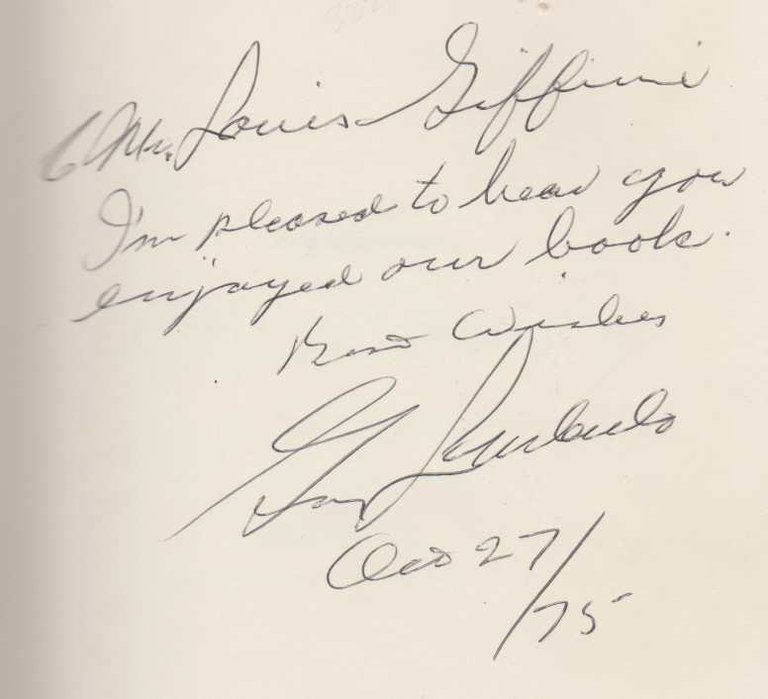 To Mr. Louis Giffini
I'm pleased to hear you
enjoyed our book.
Best Wishes
Guy Lombardo
Oct 27/75